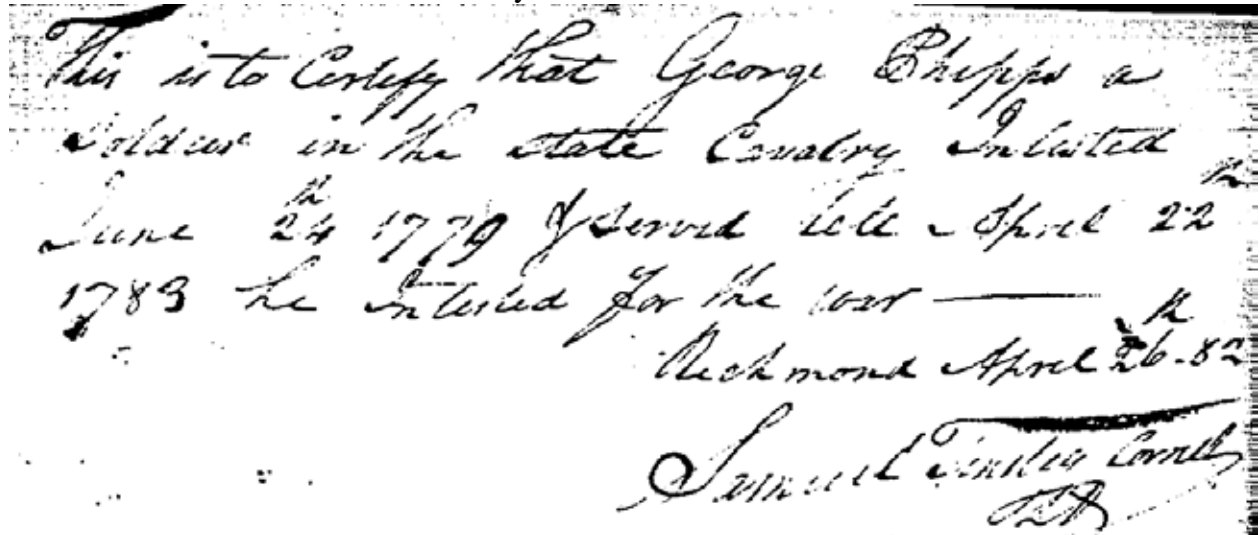 This is to Certify that George Phipps a
Soldier in the state Cavalry Inlisted
June 24th 1779 & served till April 22th
1783 he inlisted for the war
Richmond April 26th - 82
Samuel Tinsley Cornet